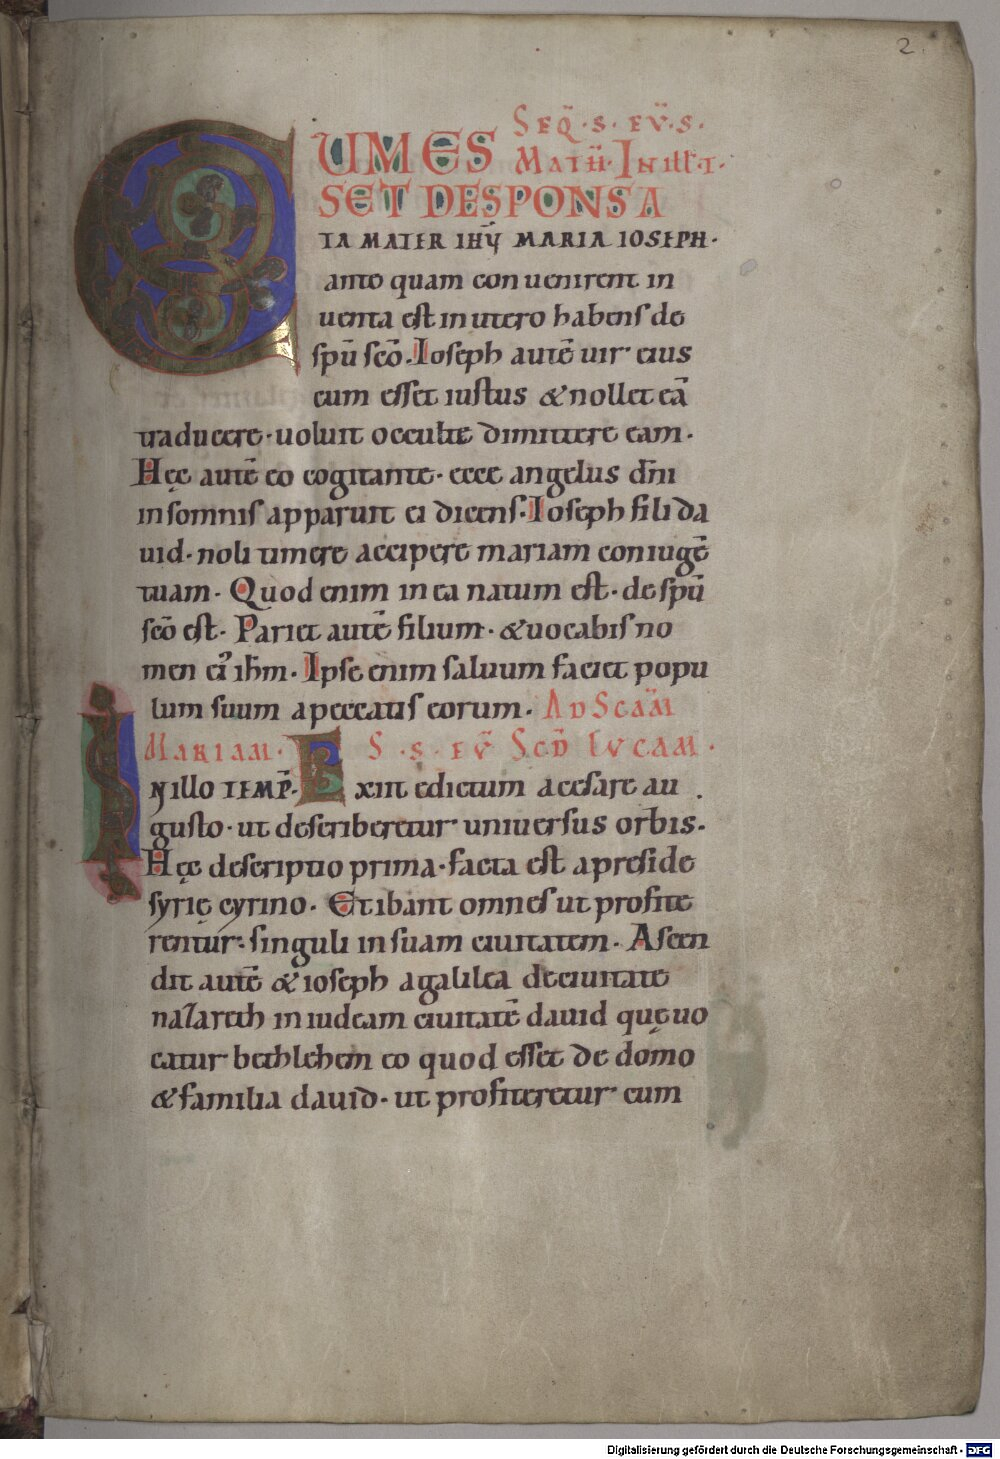 2.
SEQ̄·S·EV̄·S·
CUM ES MATH̄·IN ILL̄·T·
SET DESPONSA
TA MATER IHV̄ MARIA IOSEPH·
anto quam conuenirent in
uenta est in utero habens de
spū scō. Ioseph autē uir eius
cum esset iustus & nollet eā
traducere· uoluit occulte dimittere eam·
Hęc autē eo cogitante· ecce angelus dn̄i
in somnis apparuit ei dicens· Ioseph fili da
uid· noli timere accipere mariam coniugē
tuam· Quod enim in ea natum est· de spū
scō est· Pariet autē filium· & uocabis no
men ei' ihm̄· Ipse enim saluum faciet popu
lum suum a peccatis eorum· AD SCĀM
MARIAM· S·S·EV̄ SCD̄ LVCAM·
IN illo TEMP̄· Exiit edictum a cesare au
gusto· ut describeretur uniuersus orbis·
Hęc descriptio prima· facta est a preside
syrię cyrino· Et ibant omnes ut profite
rentur· singuli in suam ciuitatem· Ascen
dit autē & ioseph a galilea de ciuitate
nazareth in iudeam ciuitatē dauid quę uo
catur bethlehem eo quod esset de domo
& familia dauid· ut profiteretur cum
Digitalisierung gefördert durch die Deutsche Forschungsgemeinschaft - DFG